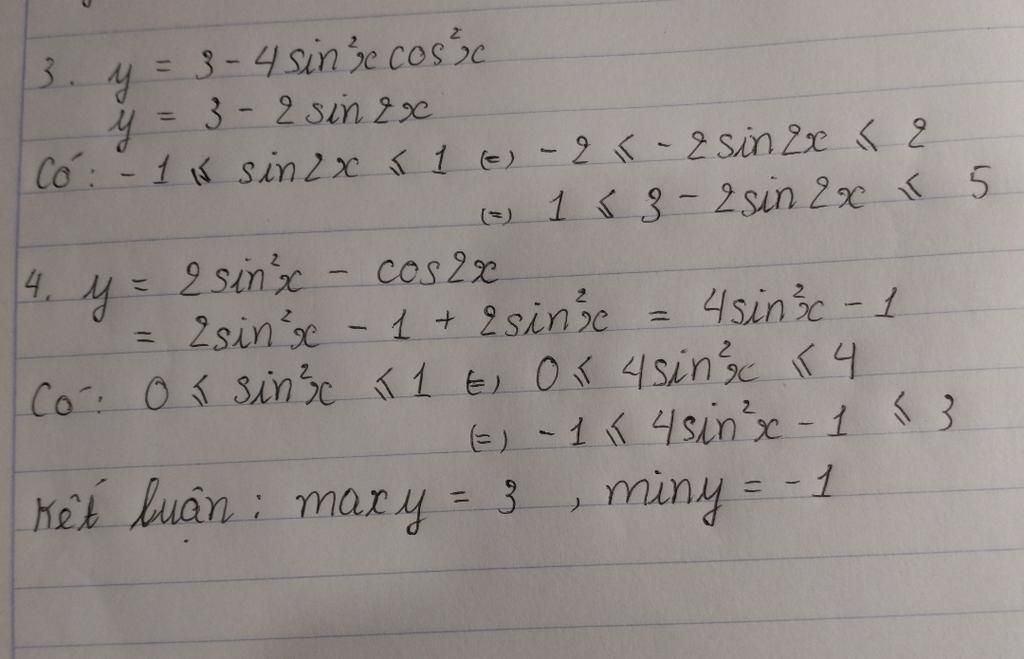 3. y = 3 - 4sin²x cos²x
y = 3 - 2sin2x
Có: -1 ⩽ sin2x ⩽ 1 (=) -2 ⩽ -2sin2x ⩽ 2
(=) 1 ⩽ 3 - 2sin2x ⩽ 5
4. y = 2sin²x - cos2x
= 2sin²x - 1 + 2sin²x = 4sin²x - 1
Có: 0 ⩽ sin²x ⩽ 1 (=) 0 ⩽ 4sin²x ⩽ 4
(=) -1 ⩽ 4sin²x - 1 ⩽ 3
Kết luận: maxy = 3 , miny = -1